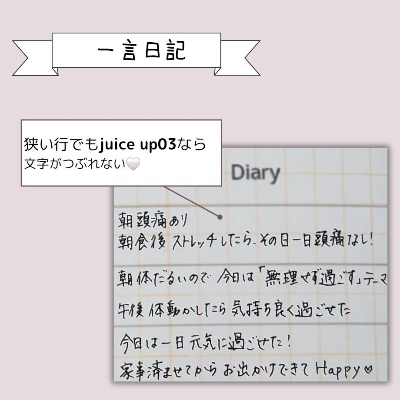 一言日記
狭い行でもjuice up03なら
文字がつぶれない🤍
Diary
朝頭痛あり
朝食後ストレッチしたら、その日一日頭痛なし!
朝体だるいので今日は「無理せず過ごす」テーマ
午後体動かしたら気持ち良く過ごせた
今日は一日元気に過ごせた!
家事済ませてからお出かけできてHappy♡